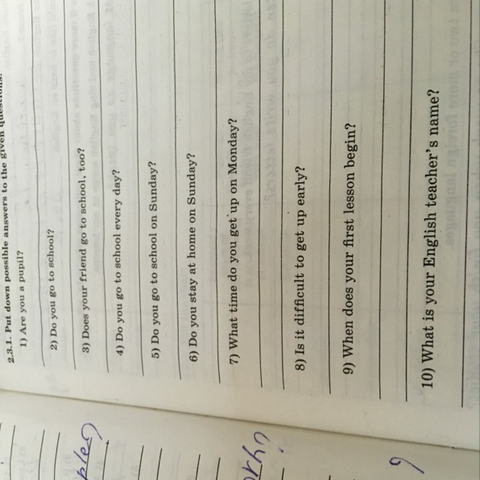 2.3.1. Put down possible answers to the given questions:
1) Are you a pupil?
2) Do you go to school?
3) Does your friend go to school, too?
4) Do you go to school every day?
5) Do you go to school on Sunday?
6) Do you stay at home on Sunday?
7) What time do you get up on Monday?
8) Is it difficult to get up early?
9) When does your first lesson begin?
10) What is your English teacher's name?